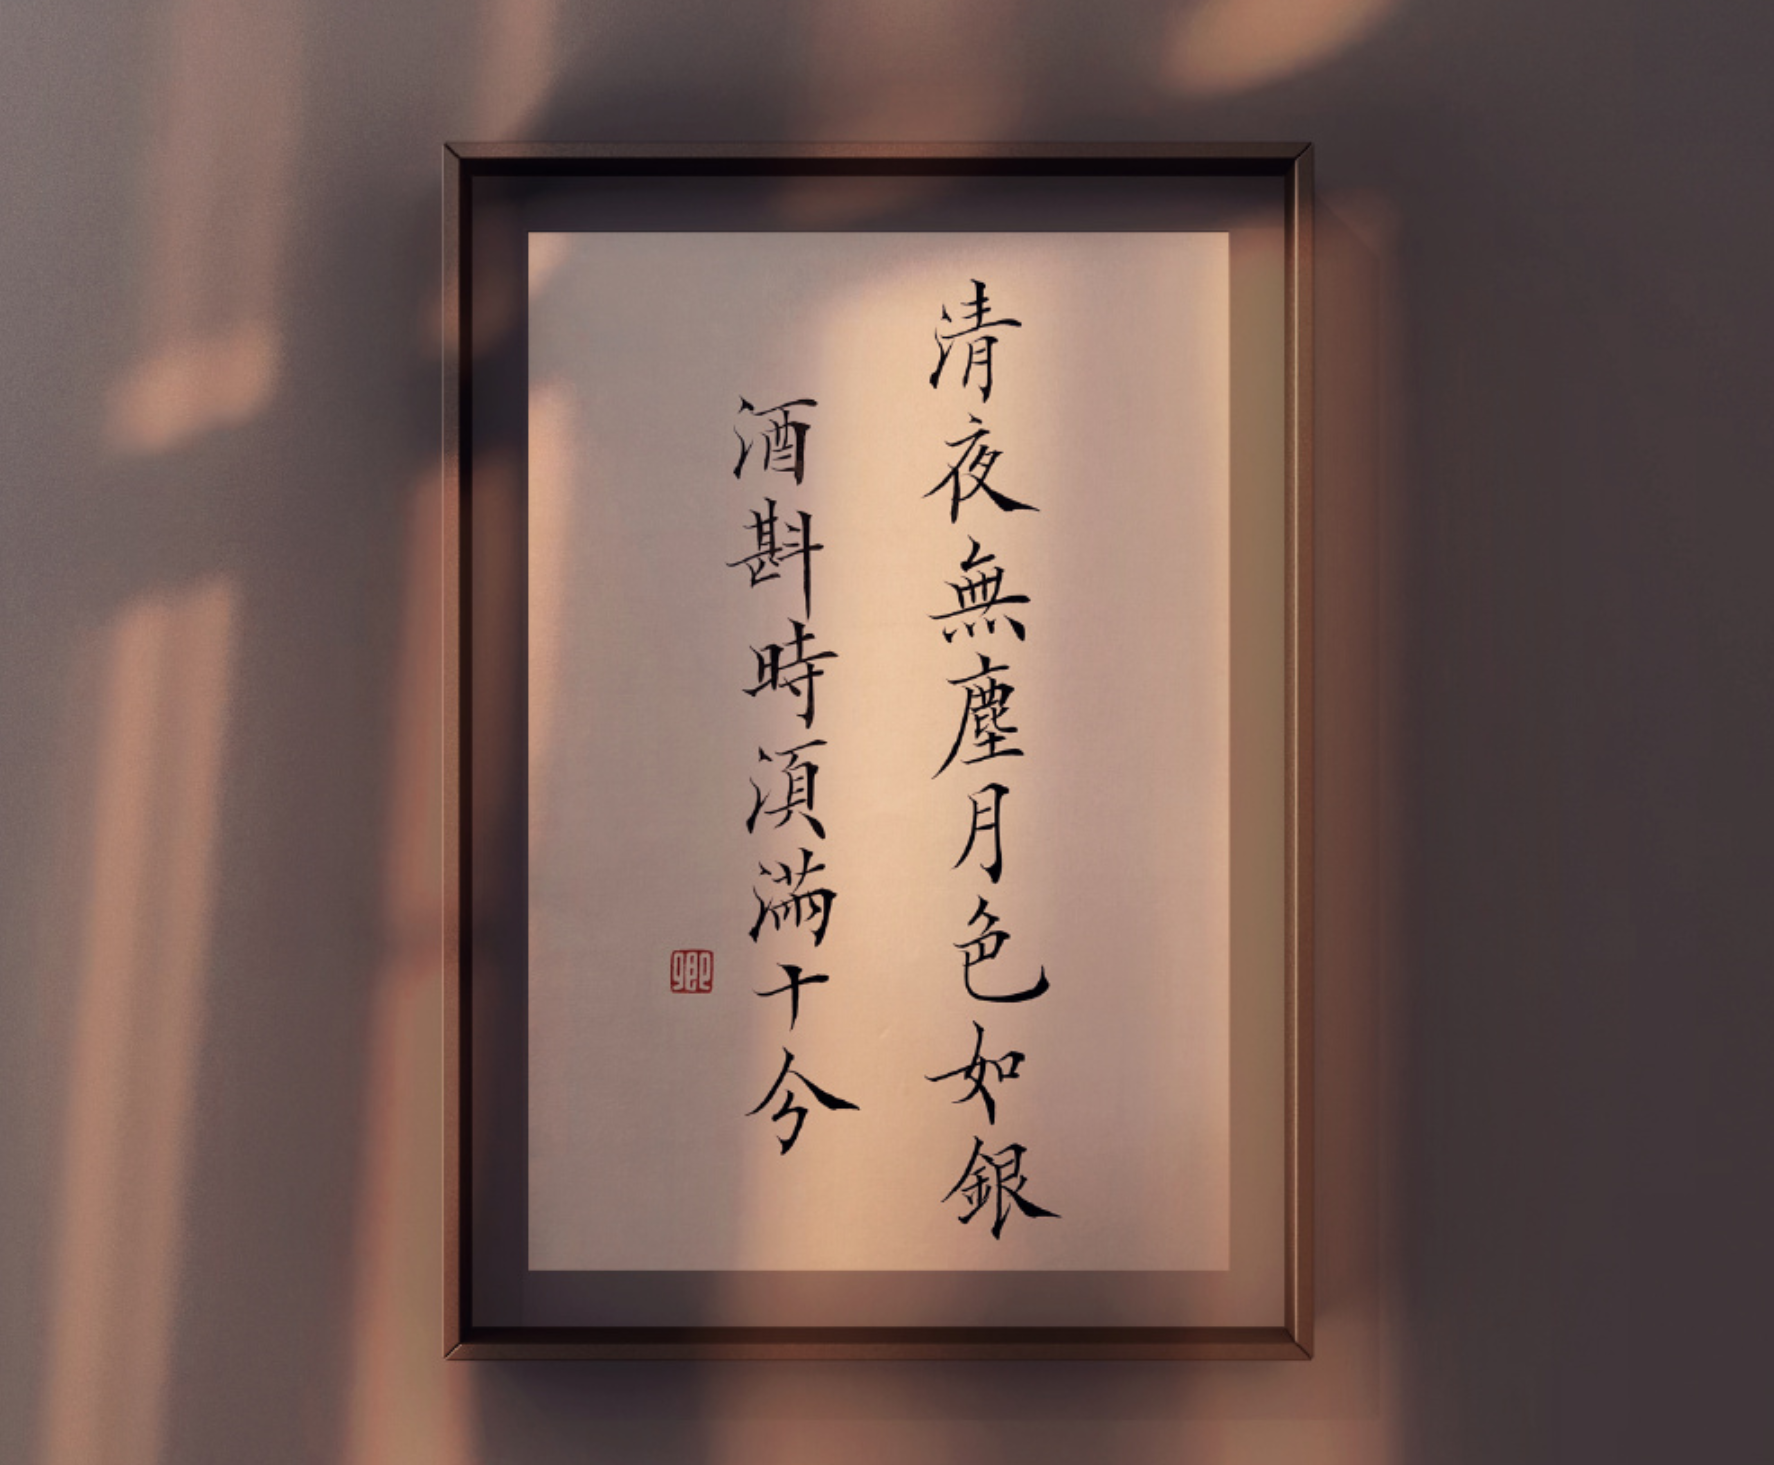 清夜無塵月色如銀
酒斟時須滿十分
卿